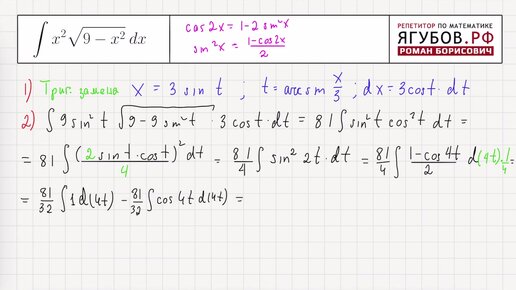 ∫ x² √(9 − x²) dx
cos 2x = 1 − 2 sin² x
sin² x = (1 − cos 2x)/2
РЕПЕТИТОР ПО МАТЕМАТИКЕ
ЯГУБОВ.РФ
РОМАН БОРИСОВИЧ
1) Триг. замена x = 3 sin t ; t = arcsin x/3 ; dx = 3 cos t · dt
2) ∫ 9 sin² t √(9 − 9 sin² t) · 3 cos t · dt = 81 ∫ sin² t cos² t dt =
= 81 ∫ (2 sin t · cos t)²/4 dt = 81/4 ∫ sin² 2t · dt = 81/4 ∫ (1 − cos 4t)/2 d(4t) 1/4 =
= 81/32 ∫ 1 d(4t) − 81/32 ∫ cos 4t d(4t) =